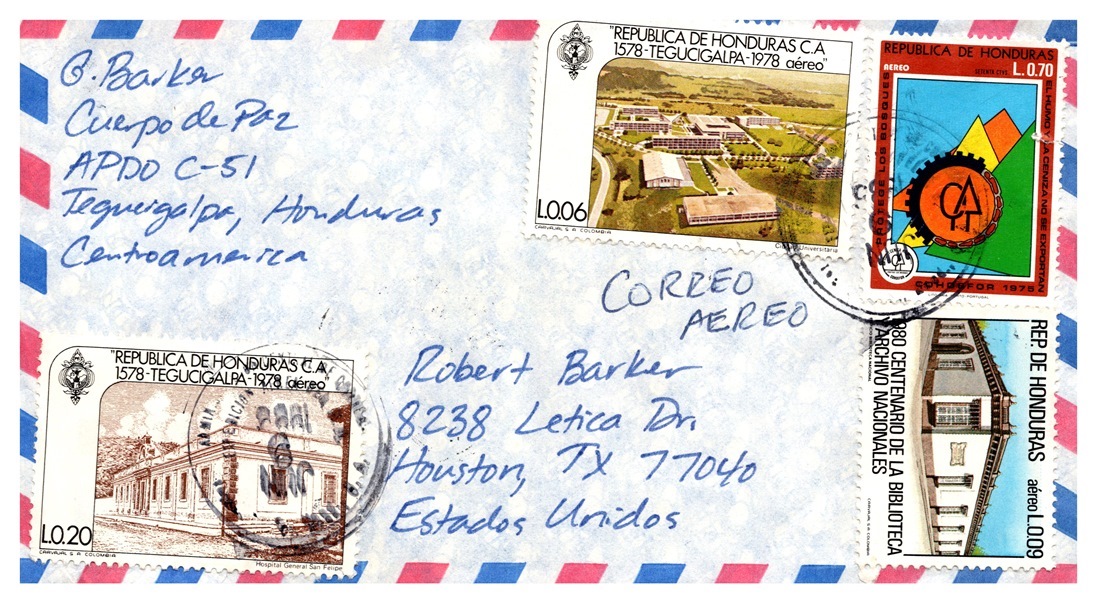 G. Barker
Cuerpo de Paz
APDO C-51
Tegucigalpa, Honduras
Centroamerica
"REPUBLICA DE HONDURAS C.A
1578-TEGUCIGALPA-1978 aéreo"
L.0.06
CARVAJAL S. A. COLOMBIA
Universitaria
REPUBLICA DE HONDURAS
AEREO
SETENTA CTVS.
L. 0.70
EL HUMO Y LA CENIZA NO SE EXPORTAN
PROTEGE LOS BOSQUES
COHDEFOR 1975
CORREO
AEREO
"REPUBLICA DE HONDURAS C.A.
1578-TEGUCIGALPA-1978 aéreo"
L.0.20
CARVAJAL S. A. COLOMBIA
Hospital General San Felipe
Robert Barker
8238 Letica Dr.
Houston, TX 77040
Estados Unidos
REP. DE HONDURAS
aéreo L.0.09
1980 CENTENARIO DE LA BIBLIOTECA
Y ARCHIVO NACIONALES
CARVAJAL S. A. COLOMBIA